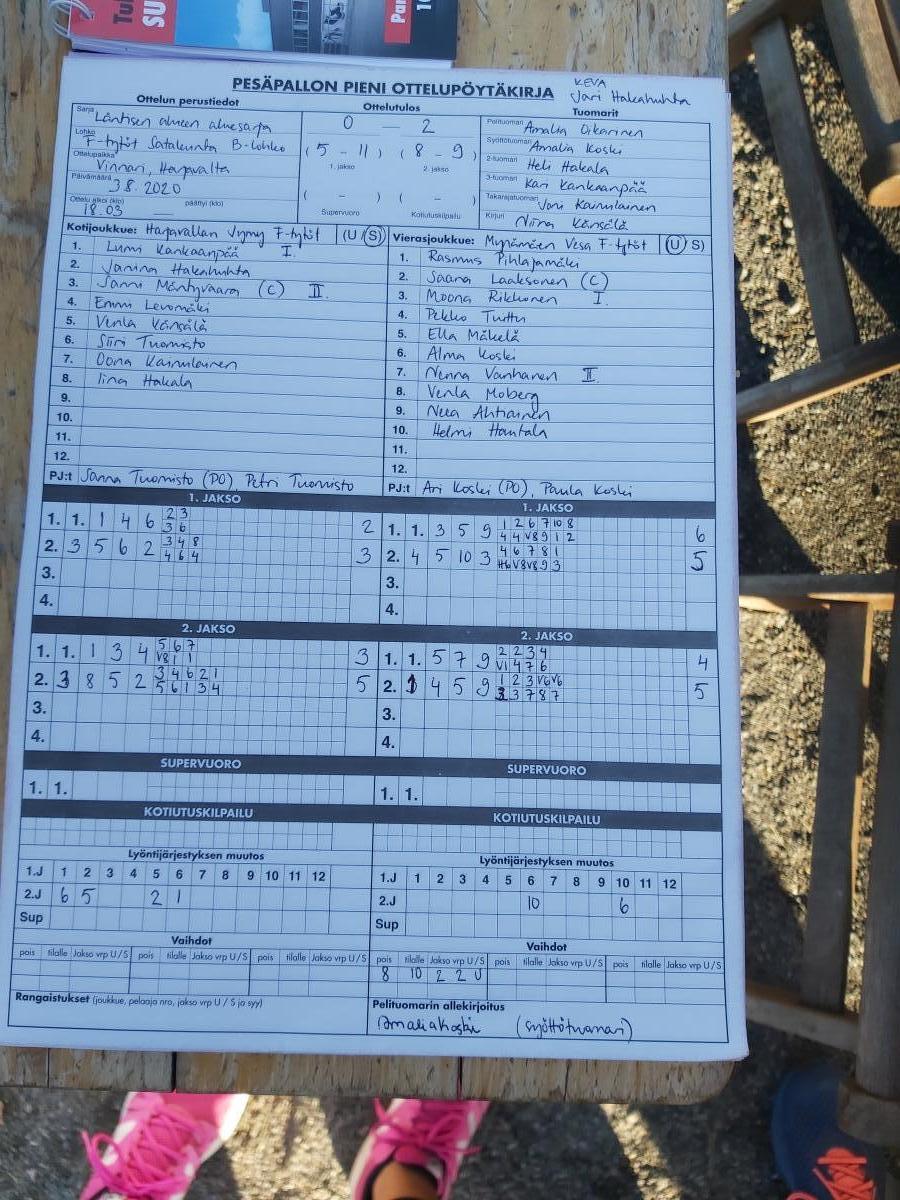 Tul
SU
Par
10
PESÄPALLON PIENI OTTELUPÖYTÄKIRJA
KEVA
Jari Hakahuhta
Ottelun perustiedot
Ottelutulos
Tuomarit
Sarja Läntisen alueen aluesarja
Lohko F-tytöt Satakunta B-lohko
Ottelupaikka Vinnari, Harjavalta
Päivämäärä 3.8.2020
Ottelu alkoi (klo) 18.03 päättyi (klo) —
0 — 2
(5 - 11) (8 - 9)
1. jakso 2. jakso
( - ) ( - )
Supervuoro Kotiutuskilpailu
Pelituomari Amalia Oikarinen
Syöttötuomari Amalia Koski
2-tuomari Heli Hakala
3-tuomari Kari Kankaanpää
Takarajatuomari Joni Kainulainen
Kirjuri Niina Känsälä
Kotijoukkue: Harjavallan Vujmy F-tytöt (U/S)
1. Lumi Kankaanpää I.
2. Janina Hakahuhta
3. Sanni Mäntyvaara (C) II
4. Emmi Levomäki
5. Venla Känsälä
6. Siiri Tuomisto
7. Oona Kainulainen
8. Iina Hakala
9.
10.
11.
12.
PJ:t Sanna Tuomisto (PO), Petri Tuomisto
Vierasjoukkue: Mynämäen Vesa F-tytöt (U/S)
1. Rasmus Pihlajamäki
2. Saana Laaksonen (C)
3. Moona Rikkonen I.
4. Pekko Tuttu
5. Ella Mäkelä
6. Alma Koski
7. Nenna Vanhanen II.
8. Venla Moberg
9. Neea Ahtiainen
10. Helmi Hantala
11.
12.
PJ:t Ari Koski (PO), Paula Koski
1. JAKSO
1. 1. 1 4 6 2 3 2
3 6
2. 3 5 6 2 3 4 8 3
4 6 4
3.
4.
1. JAKSO
1. 1. 3 5 9 1 2 6 7 10 8 6
4 4 V8 9 1 2
2. 4 5 10 3 4 6 7 8 1 5
V8 V8 9 3
3.
4.
2. JAKSO
1. 1. 1 3 4 5 6 7 3
V8 1 1
2. 3 8 5 2 3 4 6 2 1 5
5 6 1 3 4
3.
4.
2. JAKSO
1. 1. 5 7 9 2 2 3 4 4
V1 4 7 6
2. 1 4 5 9 1 2 3 V6 V6 5
3 3 7 8 7
3.
4.
SUPERVUORO
1. 1.
SUPERVUORO
1. 1.
KOTIUTUSKILPAILU
KOTIUTUSKILPAILU
Lyöntijärjestyksen muutos
1.J 1 2 3 4 5 6 7 8 9 10 11 12
2.J 6 5 2 1
Sup
Lyöntijärjestyksen muutos
1.J 1 2 3 4 5 6 7 8 9 10 11 12
2.J 10 6
Sup
Vaihdot
pois tilalle Jakso vrp U/S pois tilalle Jakso vrp U/S pois tilalle Jakso vrp U/S
Vaihdot
pois tilalle Jakso vrp U/S pois tilalle Jakso vrp U/S pois tilalle Jakso vrp U/S
8 10 2 2 U
Rangaistukset (joukkue, pelaaja nro, jakso vrp U / S ja syy)
Pelituomarin allekirjoitus
Amalia Koski (syöttötuomari)